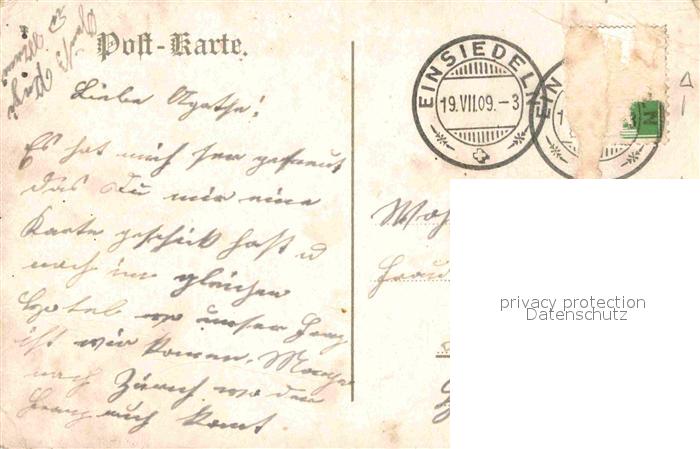 Post-Karte.
Liebe Agathe!
Es hat mich ser gefreut
das Du mir eine
Karte geschick hast u
nach im gleichen
Hotel wo unser Franz
ist wir komen. Morgen
nach Zürich wo den
Franz auch komt.
EINSIEDELN
19.VII.09.-3
EIN
3
N
Frau
privacy protection
Datenschutz